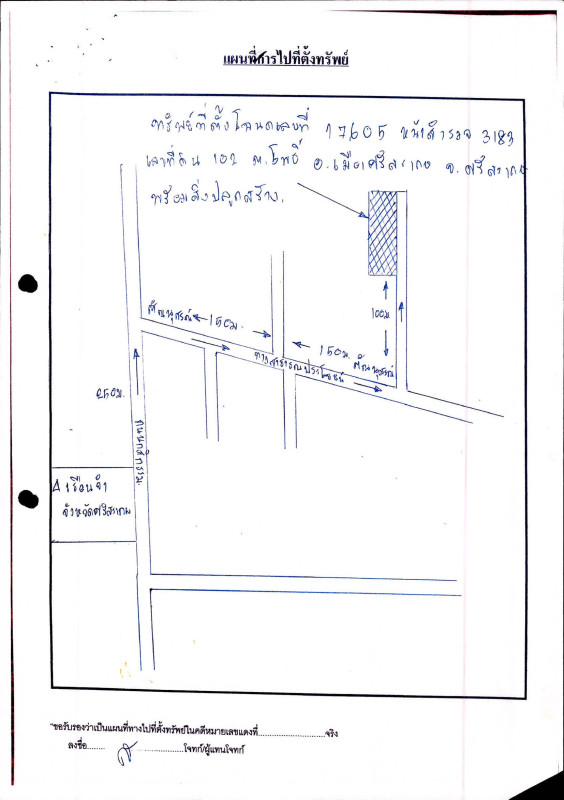 แผนที่การไปที่ตั้งทรัพย์
ทรัพย์ที่ตั้งโฉนดเลขที่ 17605 หน้าสำรวจ 3183
เลขที่ดิน 102 ต.โพธิ์ อ.เมืองศรีสะเกษ จ.ศรีสะเกษ
พร้อมสิ่งปลูกสร้าง.
150ม.
100ม.
150ม.
ทางสาธารณประโยชน์
250ม.
ถนนกสิกรรม
เรือนจำ
จังหวัดศรีสะเกษ
"ขอรับรองว่าเป็นแผนที่ทางไปที่ตั้งทรัพย์ในคดีหมายเลขแดงที่..............................จริง
ลงชื่อ........ ........................โจทก์/ผู้แทนโจทก์